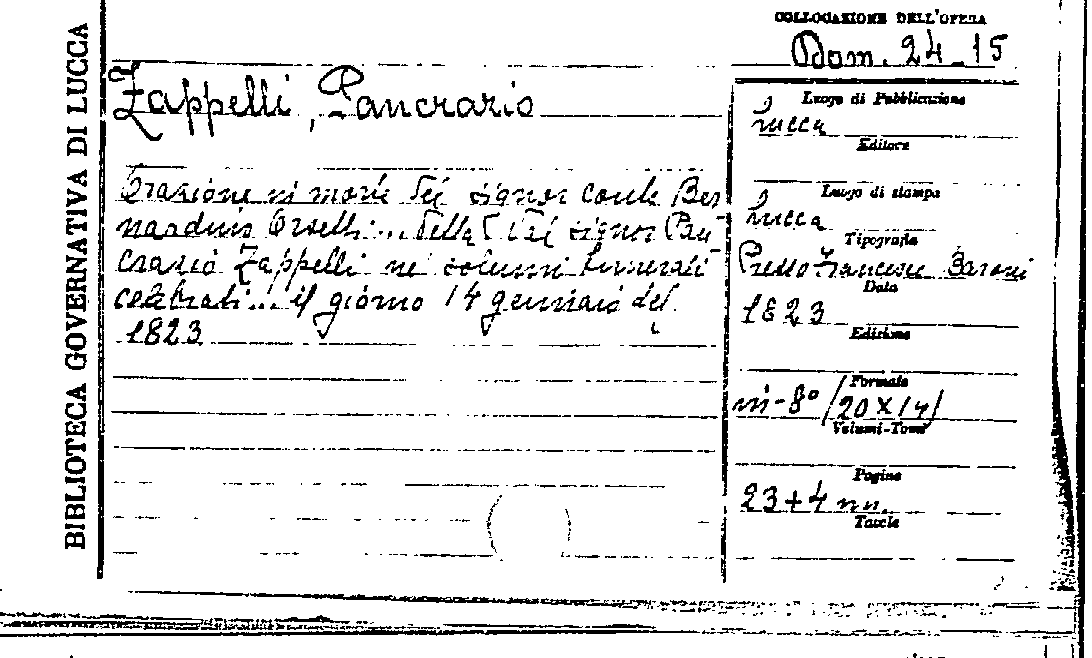 BIBLIOTECA GOVERNATIVA DI LUCCA
COLLOCAZIONE DELL'OPERA
Dom. 24-15
Zappelli, Pancrazio
Orazione in morte del signor conte Ber
nardino Orselli... detta del signor Pan
crazio Zappelli ne' solenni funerali
celebrati... il giorno 14 gennaio del
1823
Luogo di Pubblicazione
Lucca
Editore
Luogo di stampa
Lucca
Tipografia
Presso Francesco Baroni
Data
1823
Edizione
Formato
in-8° (20x14)
Volumi-Tomo
Pagine
23+4 nn.
Tavole